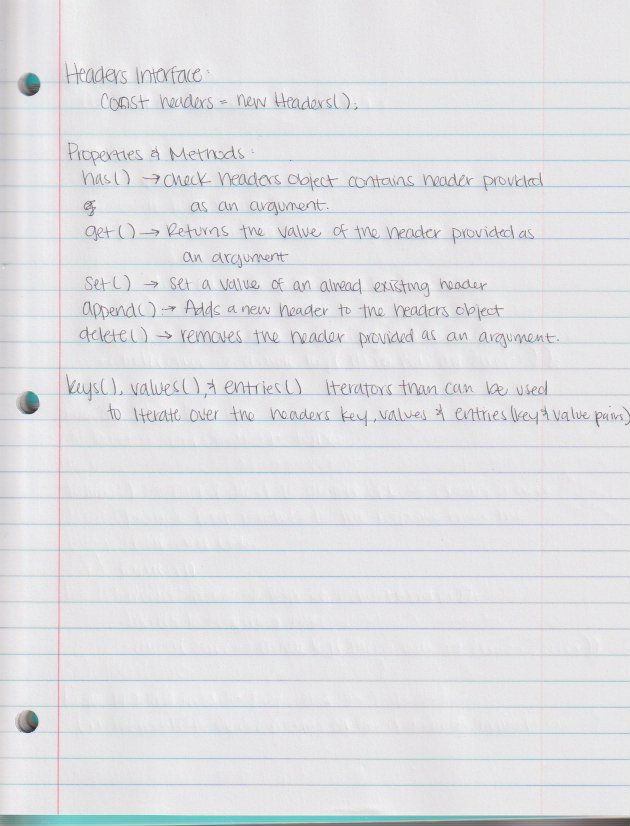 Headers Interface:
Const headers = new Headers();
Properties & Methods:
has() → check headers object contains header provided
as an argument.
get() → Returns the value of the header provided as
an argument
set() → set a value of an alread existing header
append() → Adds a new header to the headers object
delete() → removes the header provided as an argument.
keys(), values(), & entries() Iterators than can be used
to Iterate over the headers key, values & entries (key & value pairs)